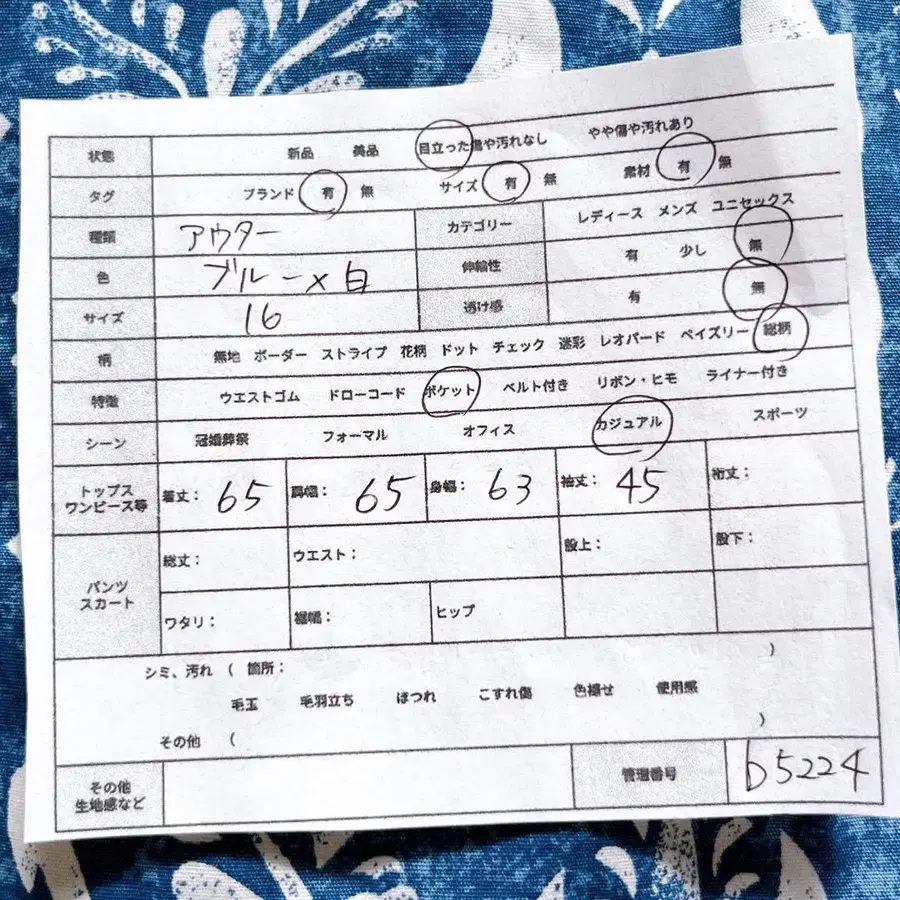 状態 新品 美品 目立った傷や汚れなし やや傷や汚れあり
タグ ブランド 有 無 サイズ 有 無 素材 有 無
種類 アウター カテゴリー レディース メンズ ユニセックス
色 ブルー×白 伸縮性 有 少し 無
サイズ 16 透け感 有 無
柄 無地 ボーダー ストライプ 花柄 ドット チェック 迷彩 レオパード ペイズリー 総柄
特徴 ウエストゴム ドローコード ポケット ベルト付き リボン・ヒモ ライナー付き
シーン 冠婚葬祭 フォーマル オフィス カジュアル スポーツ
トップス
ワンピース等 着丈: 65 肩幅: 65 身幅: 63 袖丈: 45 裄丈:
パンツ
スカート 総丈: ウエスト: 股上: 股下:
ワタリ: 裾幅: ヒップ
シミ、汚れ ( 箇所: )
毛玉 毛羽立ち ほつれ こすれ傷 色褪せ 使用感
その他 ( )
その他
生地感など 管理番号 b5224